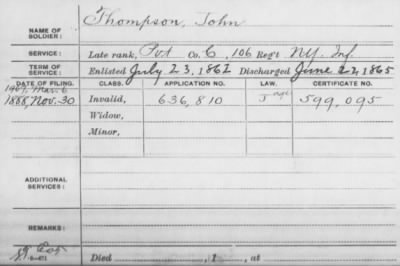 NAME OF SOLDIER: Thompson, John
SERVICE: Late rank, Pvt Co. C, 106 Reg't N.Y. Inf.
TERM OF SERVICE: Enlisted July 23, 1862 Discharged June 22, 1865
DATE OF FILING. CLASS. APPLICATION NO. LAW. CERTIFICATE NO.
1907, Mar. 6
1888, Nov. 30 Invalid, 636,810 J age 599,095
Widow,
Minor,
ADDITIONAL SERVICES:
REMARKS:
Died , 1 , at